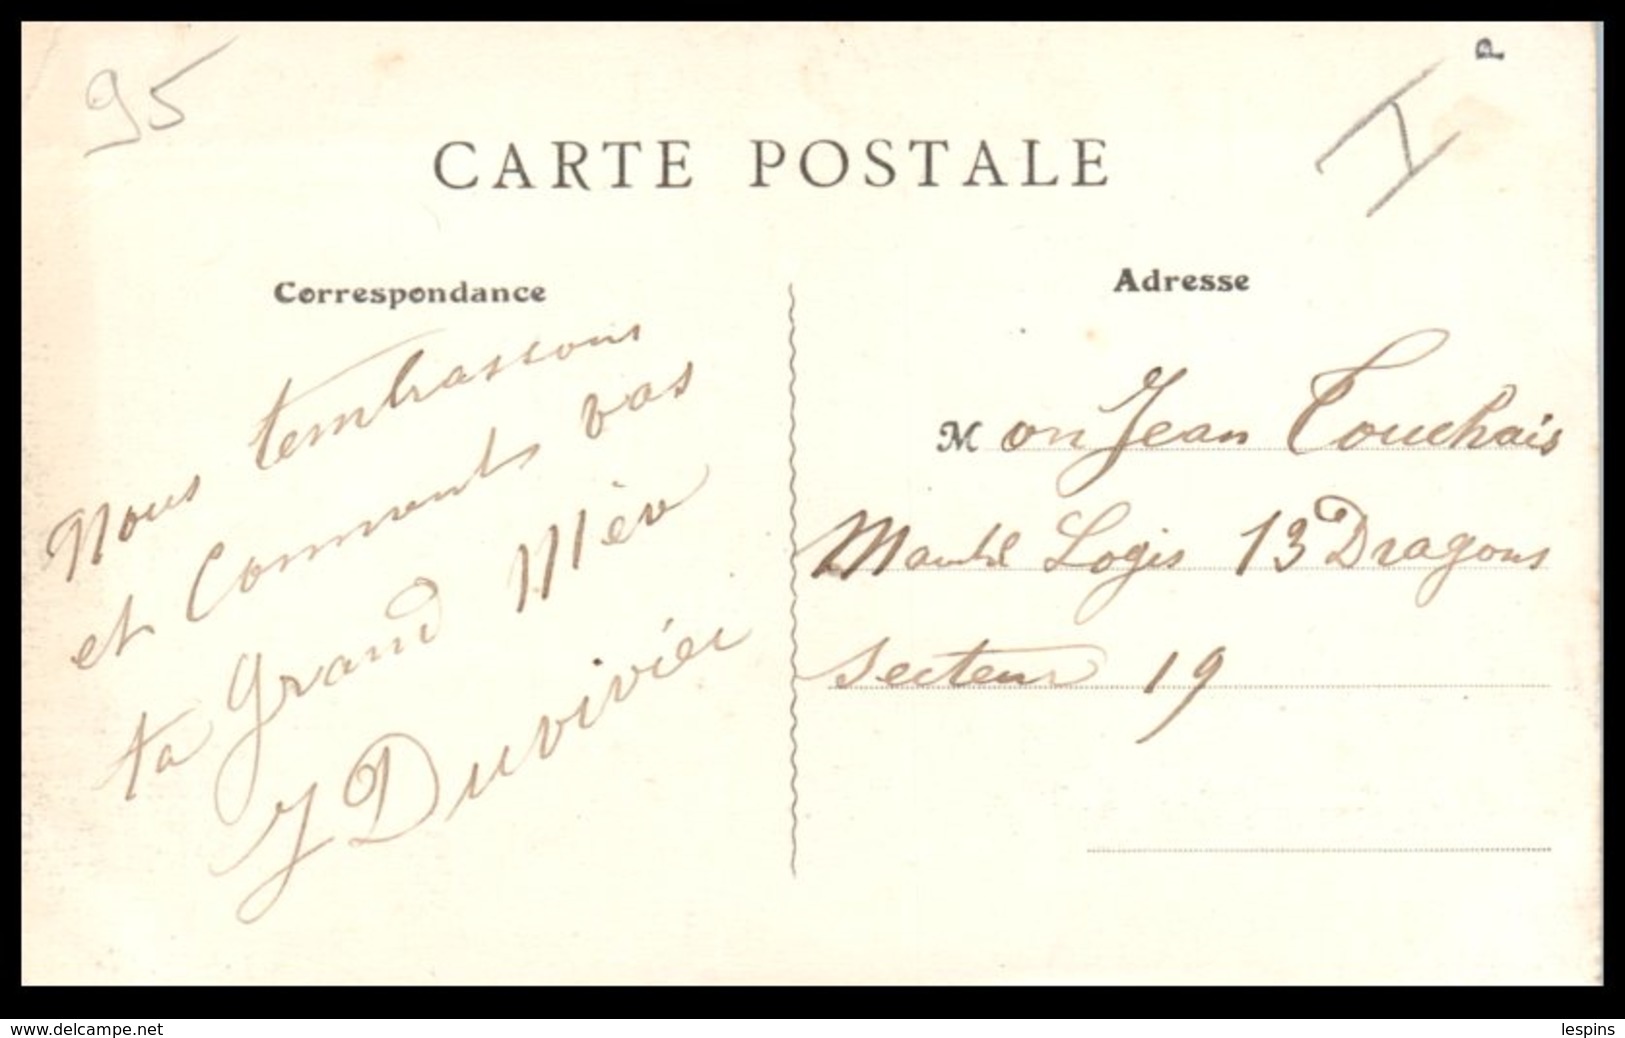 95
I
P
CARTE POSTALE
Correspondance
Nous tembrassons
et Comments vas
ta Grand Mèr
J Duvivier
Adresse
Mon Jean Touchais
Logis 13 Dragons
Secteur 19
www.delcampe.net
lespins